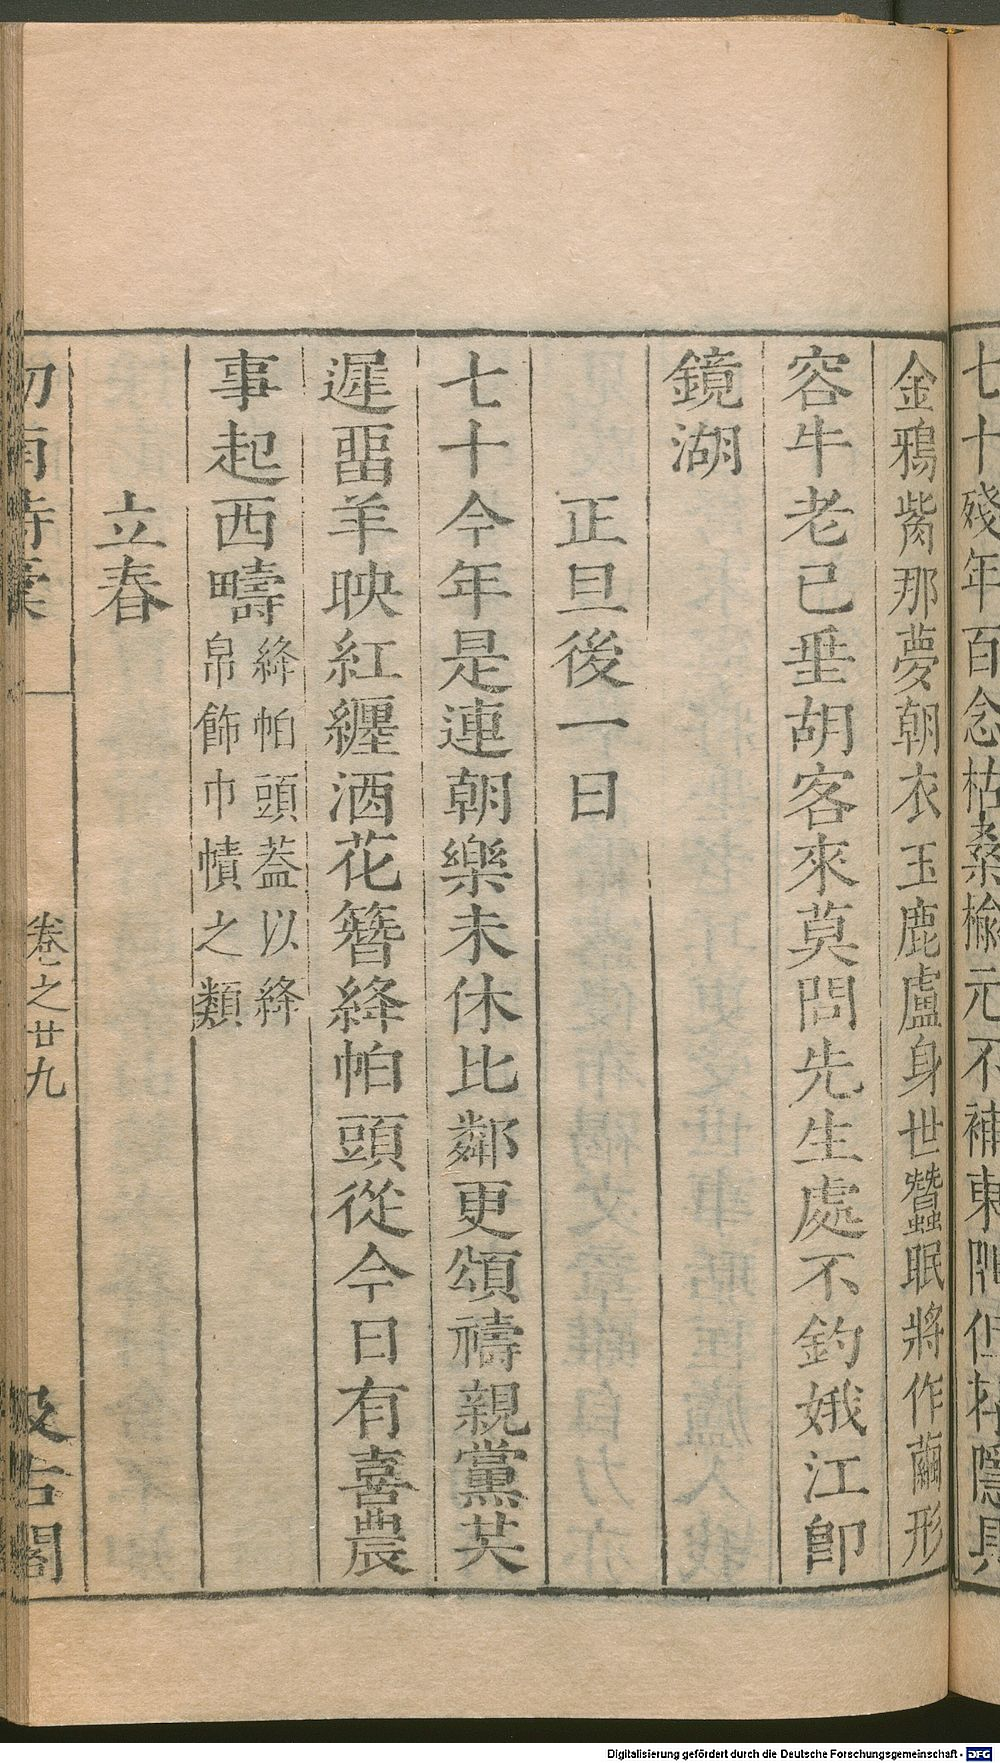 七十殘年百念枯桑榆元不補東隅但存隱具
金鴉觜那夢朝衣玉鹿盧身世蠶眠將作繭形
容牛老已垂胡客來莫問先生處不釣娥江卽
鏡湖
正旦後一日
七十今年是連朝樂未休比鄰更頌禱親黨共
遲畱羊映紅纏酒花簪絳帕頭從今日有喜農
事起西疇絳帕頭葢以絳
帛飾巾幘之類
立春
劒南詩稾
卷之廿九
汲古閣
Digitalisierung gefördert durch die Deutsche Forschungsgemeinschaft - DFG